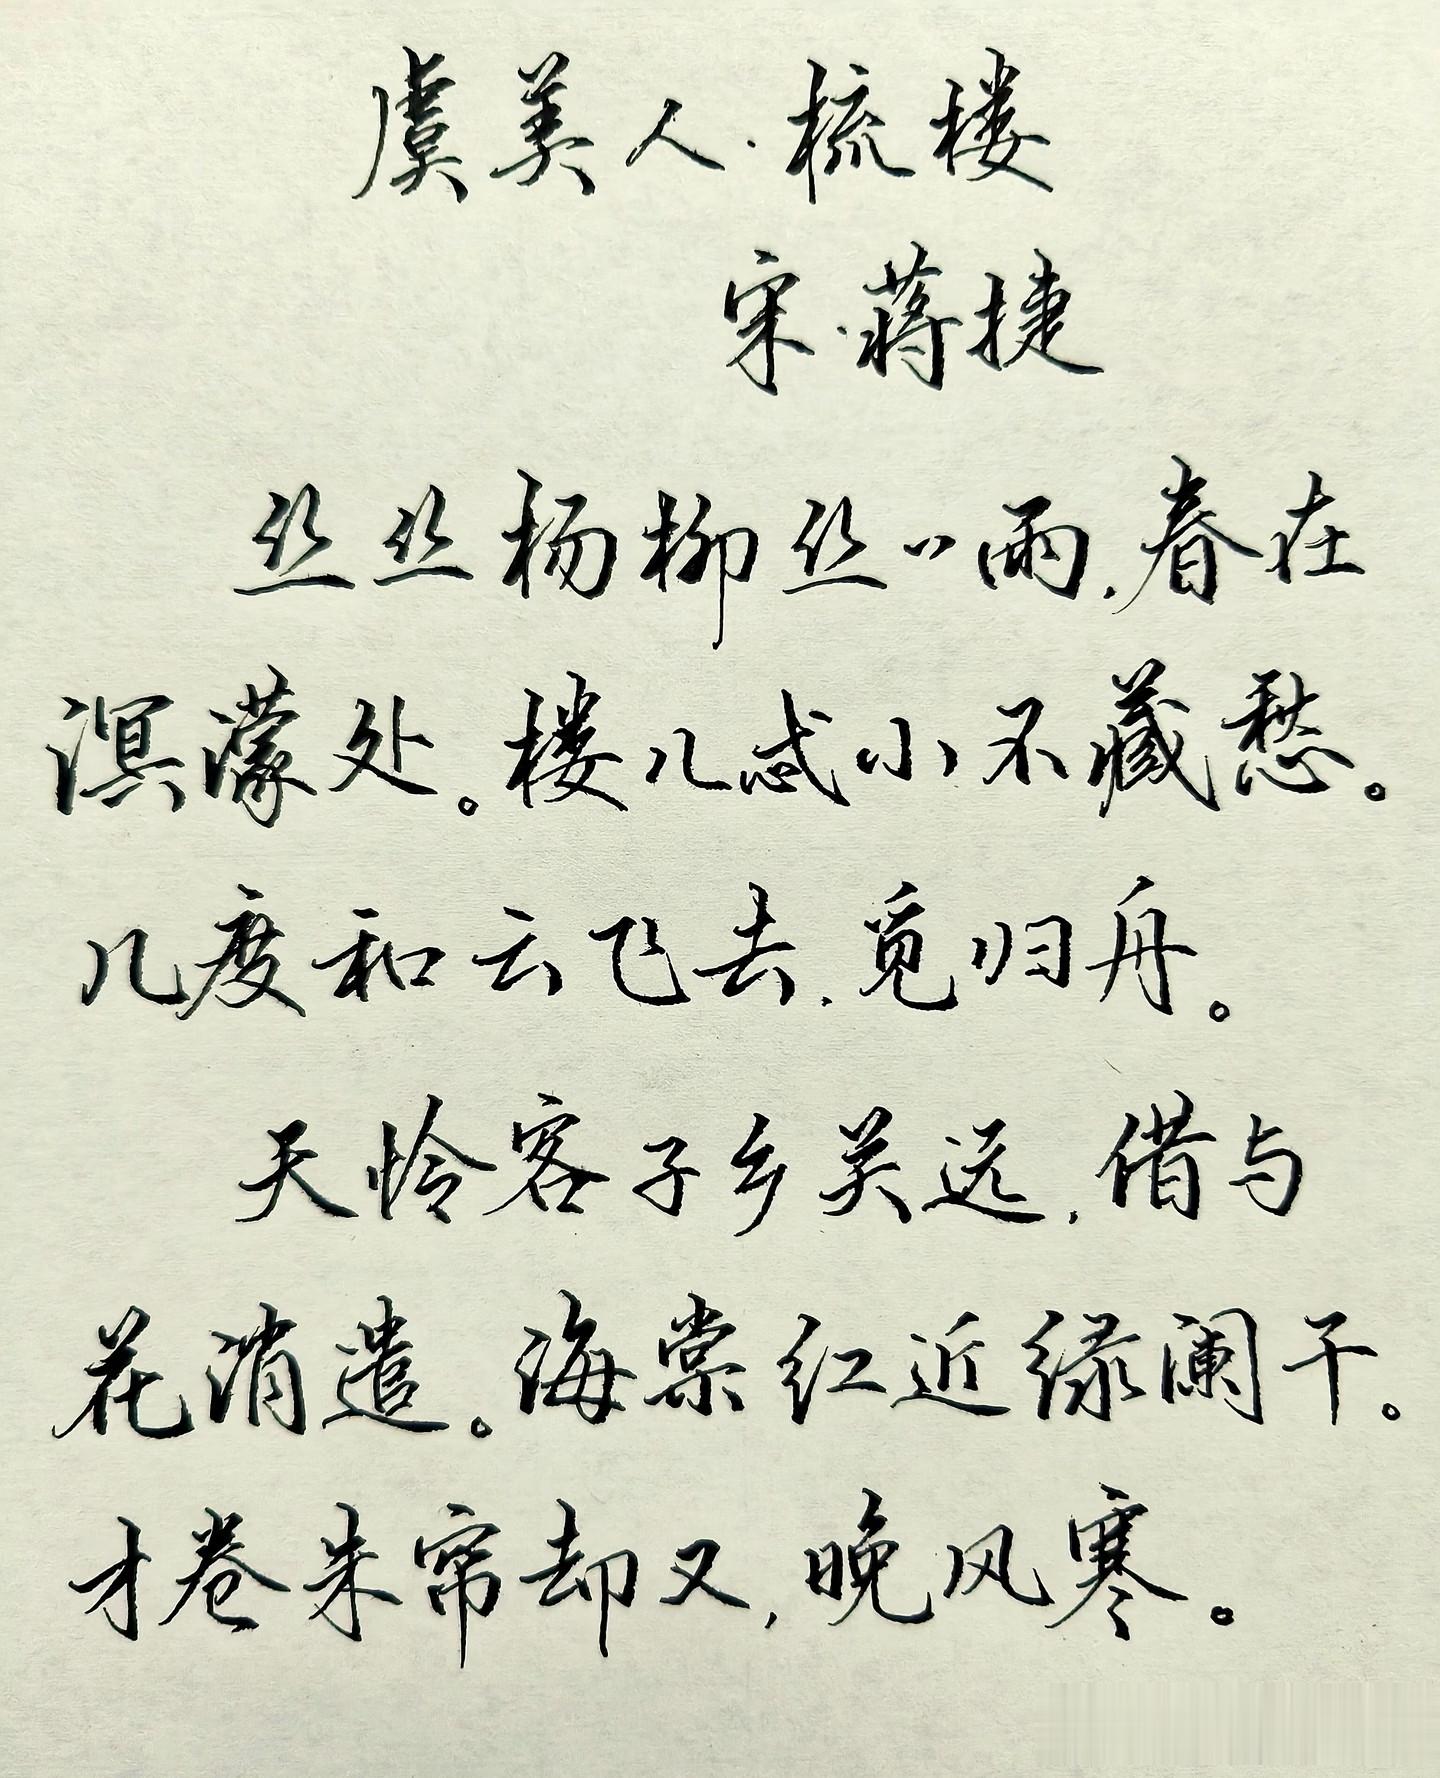 虞美人·梳楼
宋·蒋捷
丝丝杨柳丝丝雨,春在
溟濛处。楼儿忒小不藏愁。
几度和云飞去,觅归舟。
天怜客子乡关远,借与
花消遣。海棠红近绿阑干。
才卷朱帘却又,晚风寒。